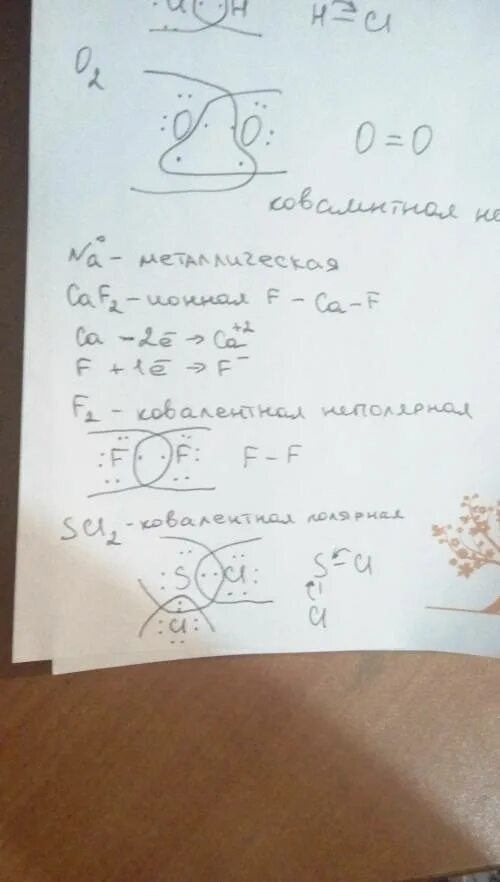 :Cl H H – Cl
O₂
:O· ·O: O=O
ковалинтная не
Na° - металлическая
CaF₂ - ионная F - Ca - F
Ca - 2ē → Ca⁺²
F + 1ē → F⁻
F₂ - ковалентная неполярная
:F· ·F: F - F
SCl₂ - ковалентная полярная
:S : Cl: S – Cl
:Cl: Cl